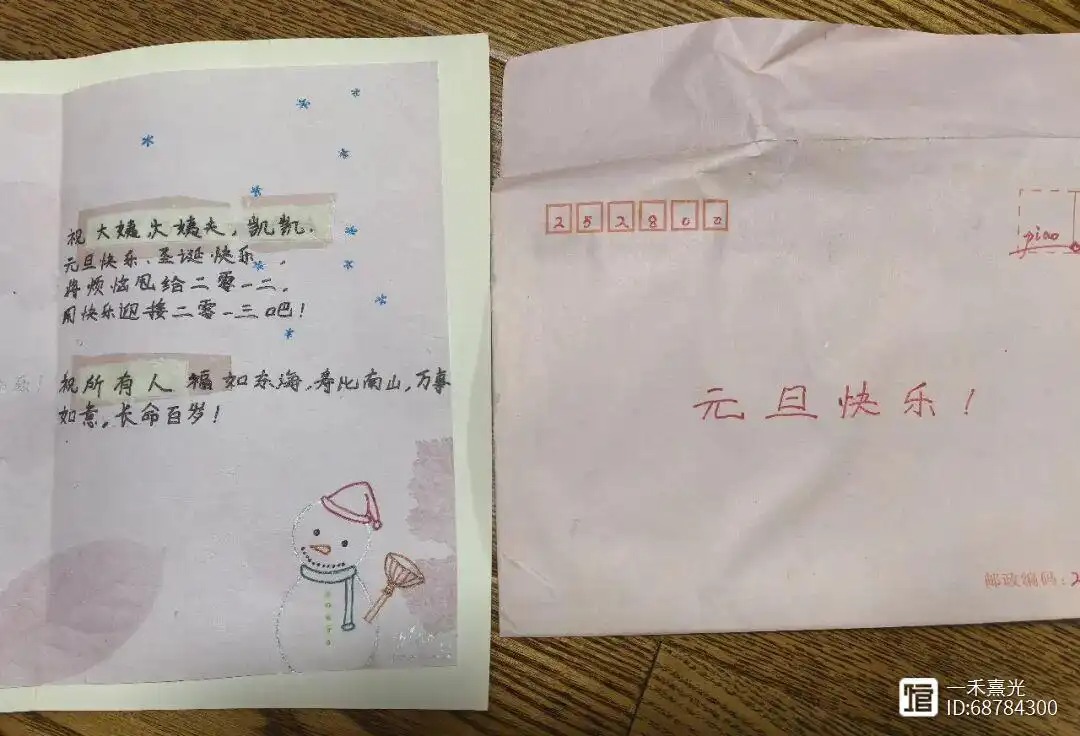 祝大姨大姨夫，凯凯，
元旦快乐、圣诞快乐，
将烦恼甩给二零一二，
用快乐迎接二零一三吧！
祝所有人福如东海，寿比南山，万事
如意，长命百岁！
乐！
252800
piao
元旦快乐！
邮政编码：2
一禾熹光
ID:68784300